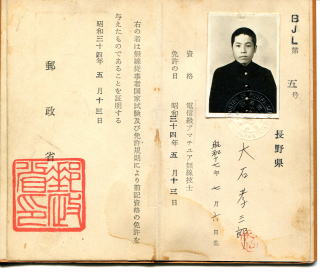 BJL第 五号
長野県
大石孝三郎
昭和十七年 七月 六日生
資格 電信級アマチュア無線技士
免許の日 昭和三十四年 五月十三日
右の者は無線従事者国家試験及び免許規則により前記資格の免許を
与えたものであることを証明する
昭和三十四年 五月十三日
郵政省
郵政省印